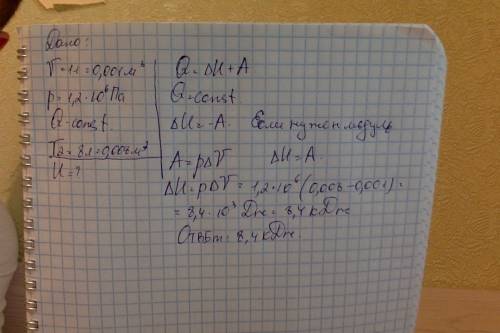 Дано:
V=1л=0,001м³
p=1,2·10⁶Па
Q-const.
V₂=8л=0,008м³
U=?
Q=ΔU+A
Q=const
ΔU=-A. Если нужен модуль
A=pΔV ΔU=A.
ΔU=pΔV=1,2·10⁶(0,008-0,001)=
=8,4·10³Дж=8,4кДж
Ответ: 8,4кДж.